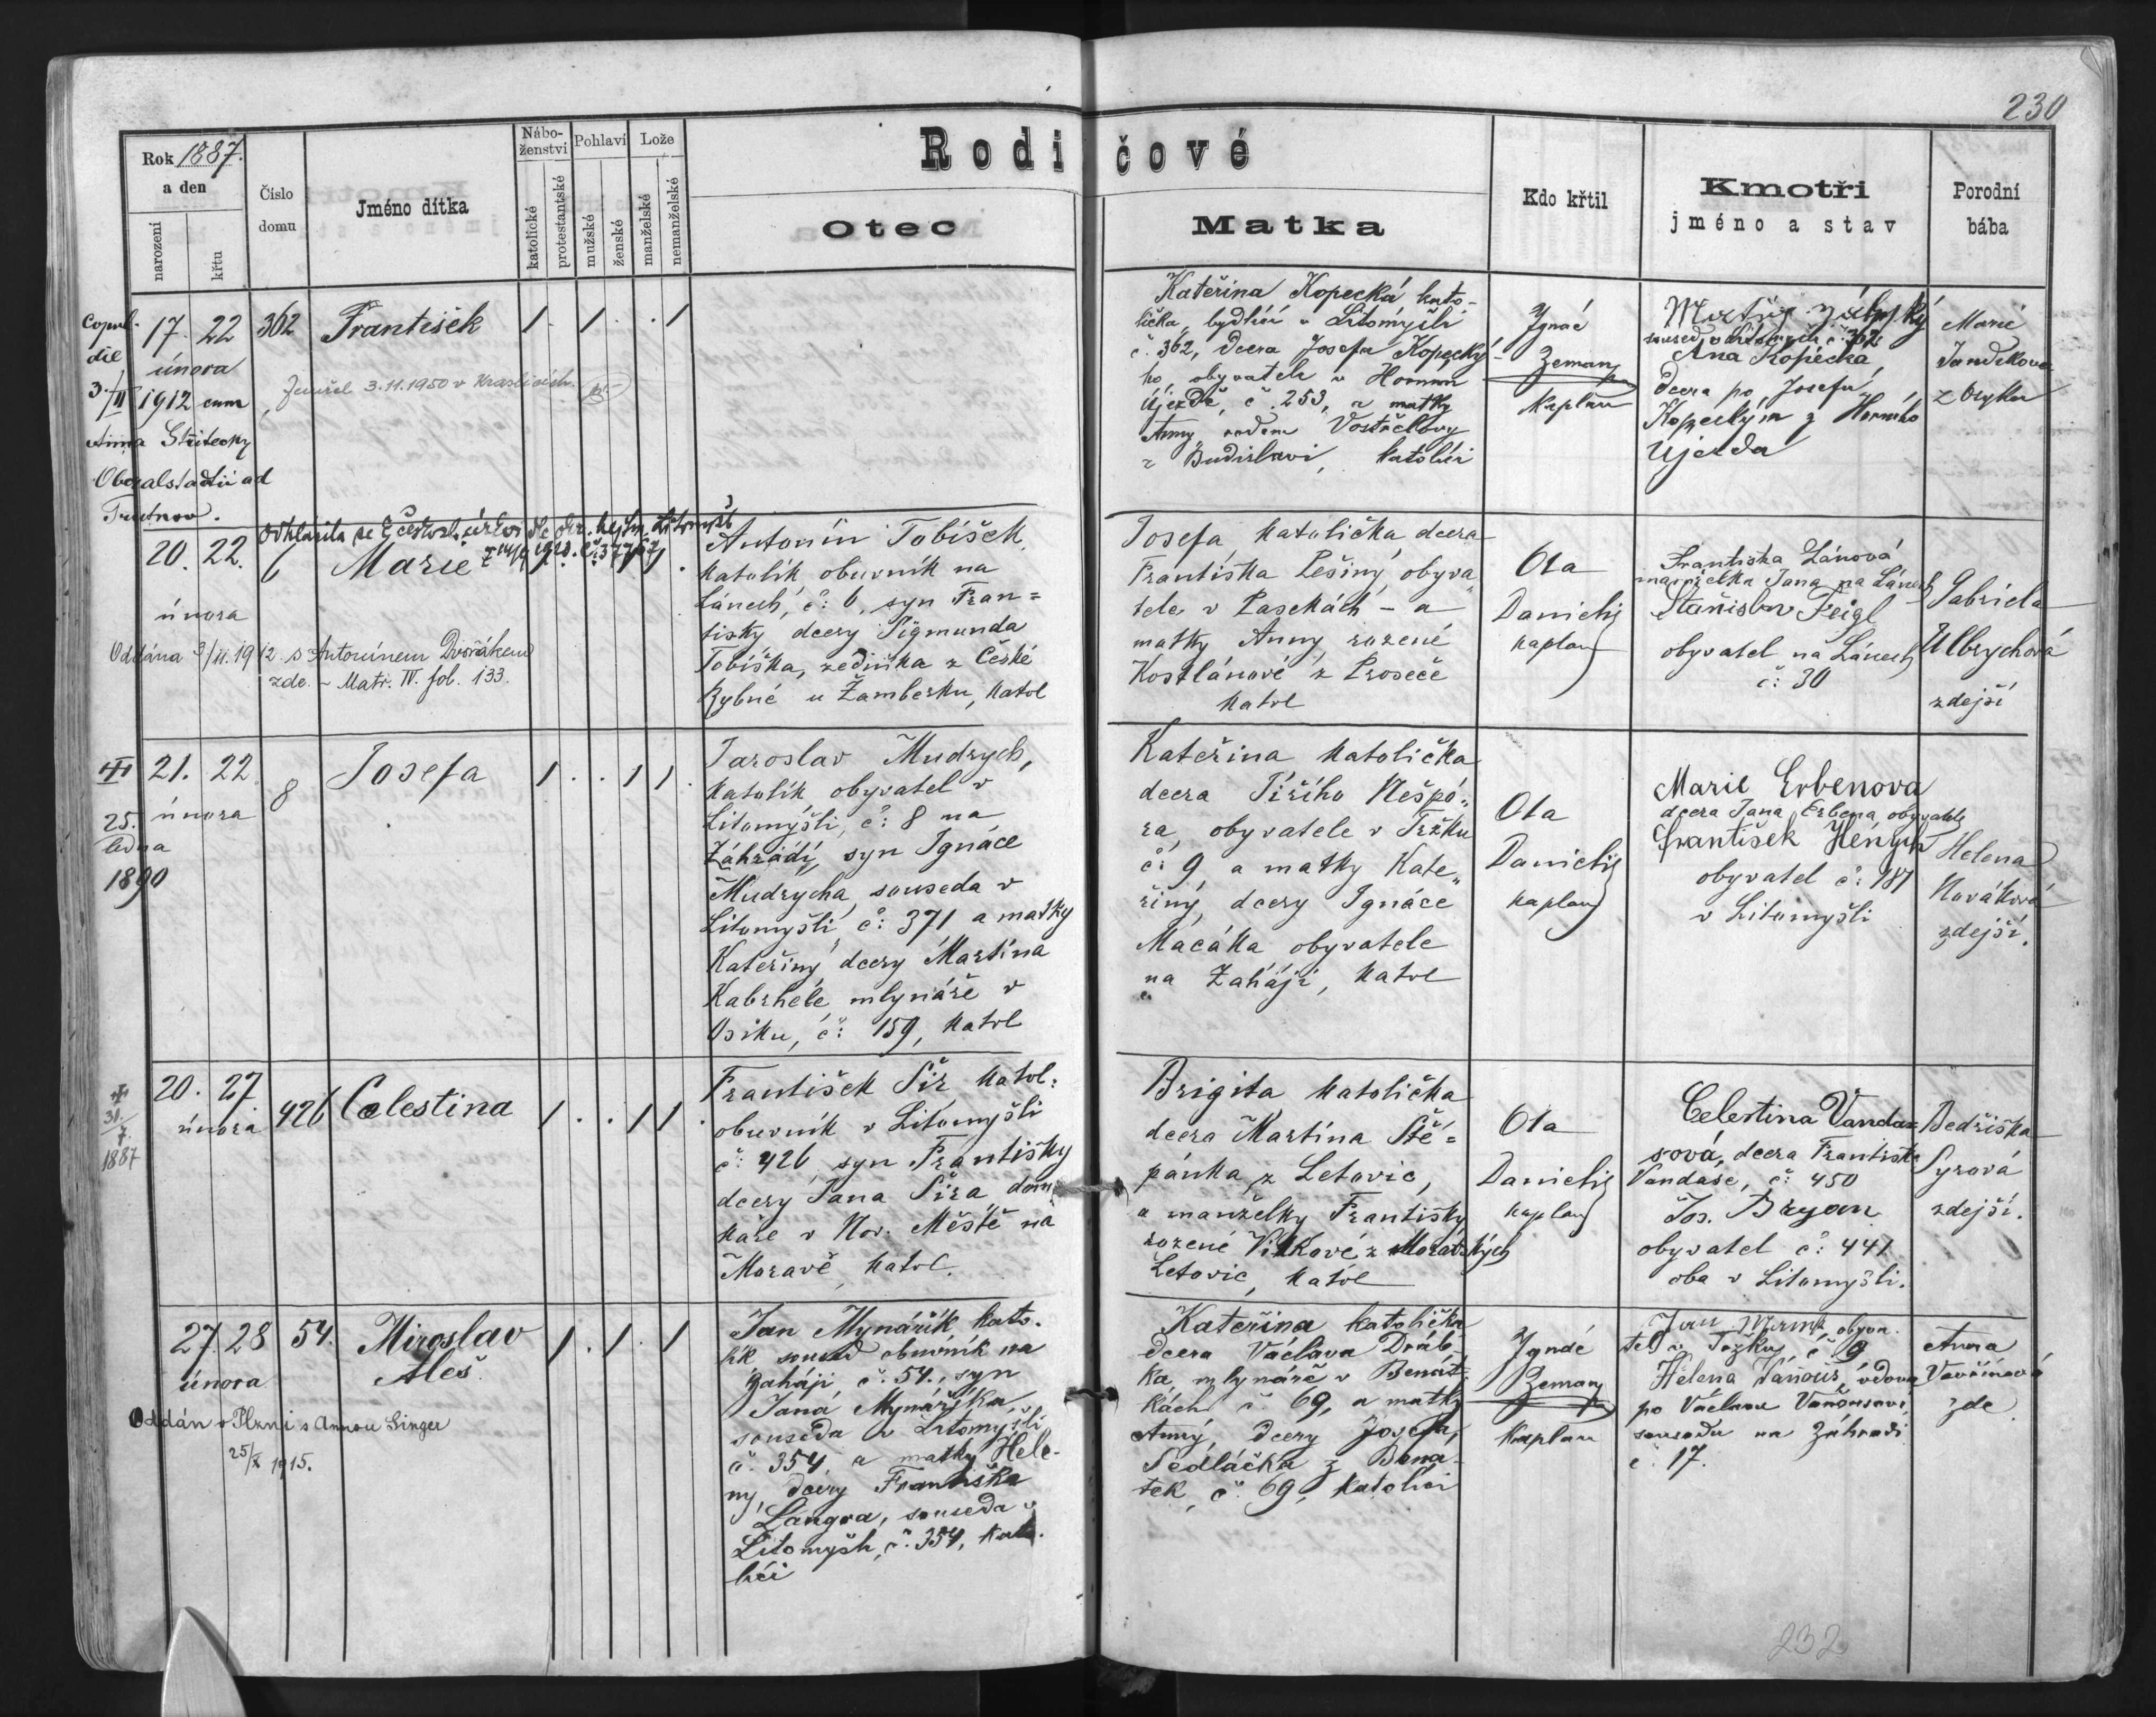 230
Rok 1887.
a den
narození
křtu
Číslo
domu
Jméno dítka
Nábo-
ženství
katolické
protestantské
Pohlaví
mužské
ženské
Lože
manželské
nemanželské
Rodičové
Otec
Matka
Kdo křtil
Kmotři
jméno a stav
Porodní
bába
Copul.
die
3./II 1912 cum
Anna
Trutnov.
17. 22
února
362
František
1 . 1 . . 1
Zemřel 3.11.1950 v Kraslicích.
Kateřina Kopecká kato-
lička, bydlící v Litomyšli
č. 362, dcera Josefa Kopecký-
ho, obyvatele v Horním
Újezdě, č. 253, a matky
Anny, rodem
z Budislavi, katolíci
Ignác
Zeman
Kaplan
soused v Litomyšli č. 362
Ana Kopecká,
dcera po Josefu
Kopeckým z Horního
Újezda
Marie
Jandíkova
z Osyka
20. 22.
února
6
Marie
Oddána 3/II. 1912 s Antonínem Dvořákem
zde. - Matr. IV. fol. 133.
Antonín Tobíšek,
katolík obuvník na
Lánech, č: 6, syn Fran=
tišky dcery Sigmunda
Tobíška, zedníka z České
Rybné u Žamberku, katol
Josefa, katolička dcera
Františka Lešiny, obyva„
tele v Pasekách - a
matky Anny, rozené
Kostlánové z Proseče
katol
Ota
Danielis
kaplan
Františka Lánová
manželka Jana na Lánech
Stanislav Feigl
obyvatel na Lánech
č: 30
Gabriela
Ulbrychová
zdejší
25.
ledna
1890
21. 22.
února
8
Josefa
1 . . 1 1 .
Jaroslav Mudrych,
katolík obyvatel v
Litomyšli, č: 8 na
Záhradí, syn Ignáce
Mudrycha, souseda v
Litomyšli č: 371, a matky
Kateřiny, dcery Martina
Kabrhele, mlynáře v
Osiku, č: 159, katol
Kateřina katolička
dcera Jiřího Nešpó„
ra, obyvatele v Tržku
č: 9, a matky Kate„
řiny, dcery Ignáce
Macáka obyvatele
na Zaháji, katol
Ota
Danielis
kaplan
Marie Erbenova
dcera Jana Erbena, obyvatele
František Henych
obyvatel č: 187
v Litomyšli
Helena
Nováková
zdejší.
31.
7.
1887
20. 27
února
426
Celestina
1 . . 1 1 .
František Šír, katol.
obuvník v Litomyšli
č: 426, syn Františky
dcery Jana Šíra, dom„
káře v Nov. Městě na
Moravě, katol.
Brigita katolička
dcera Martina Ště=
pánka z Letovic,
a manželky Františky
rozené Vítkové z Moravských
Letovic, katol
Ota
Danielis
kaplan
Celestina Vanda=
sová, dcera Františka
Vandase, č: 450
Jos. Bryan
obyvatel č: 441
oba v Litomyšli.
Bedřiška
Syrová
zdejší.
27. 28
února
54.
Miroslav
Aleš.
1 . 1 . 1
Oddán v Plzni s Annou Singer
25/X 1915.
Jan Mynářík kato-
lík soused obuvník na
Zaháji, č. 54., syn
Jana Mynáříka,
souseda v Litomyšli
č. 354, a matky Hele-
ny, dcery Františka
Langra, souseda v
Litomyšli, č. 354, kato-
líci
Kateřina katolička
dcera Václava Dráb-
ka, mlynáře v Benát-
kách č. 69, a matky
Anny, dcery Josefa,
Sedláčka z Bena-
tek, č. 69, katolíci
Ignác
Zeman
Kaplan
Jan obyva-
tel v Tržku, č. 9
Helena Vaňous, vdova
po Václavu Vaňousovi,
sousedu na Záhradi
č. 17.
Anna
Vavřínová
zde
232